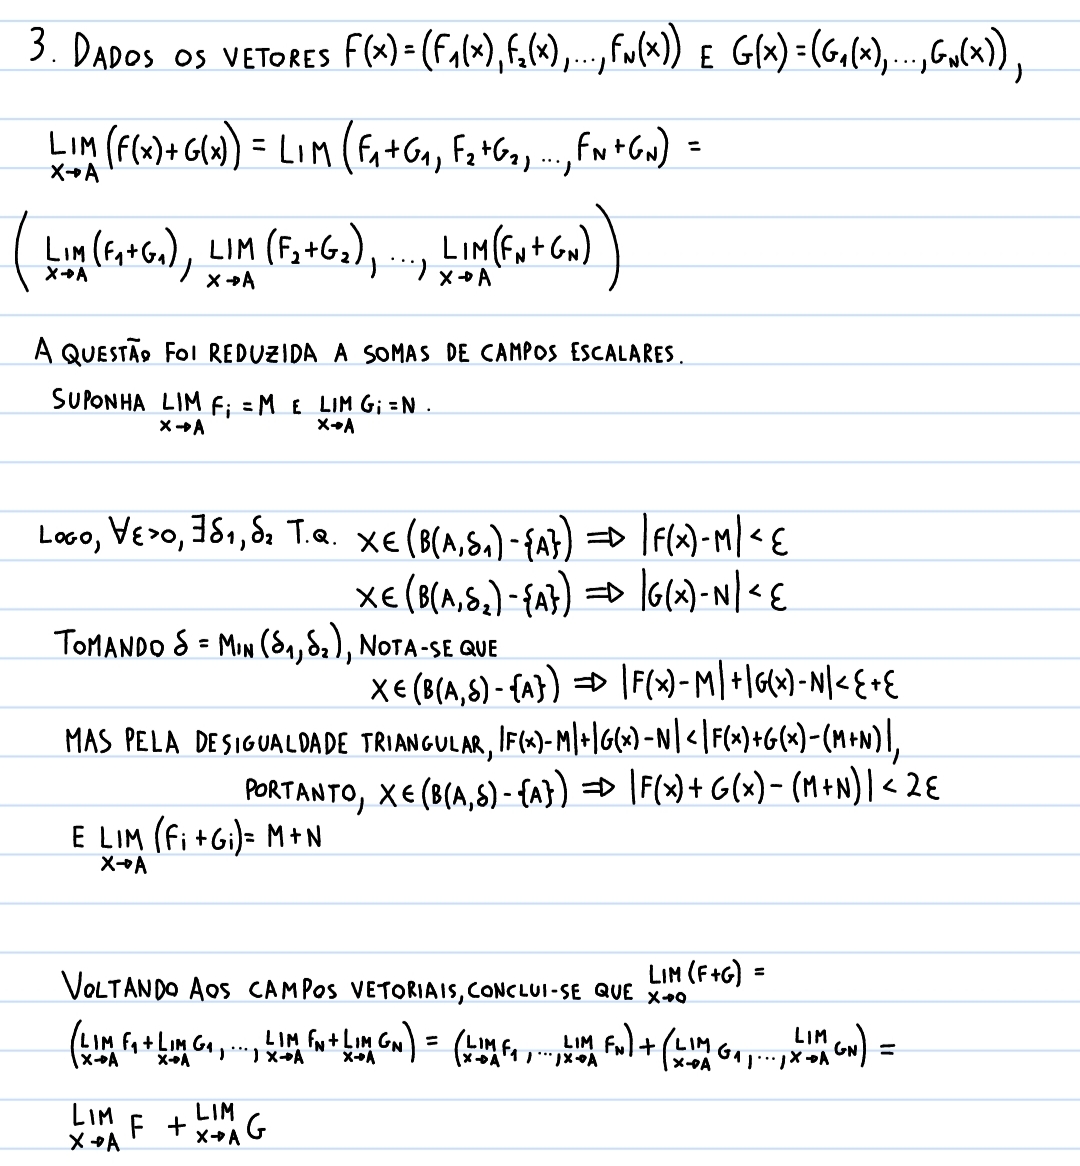 3. DADOS OS VETORES F(x)=(F₁(x),F₂(x),...,Fₙ(x)) E G(x)=(G₁(x),...,Gₙ(x)),
LIM (F(x)+G(x)) = LIM (F₁+G₁, F₂+G₂, ..., Fₙ+Gₙ) =
X→A
(LIM (F₁+G₁), LIM (F₂+G₂), ..., LIM (Fₙ+Gₙ))
X→A X→A X→A
A QUESTÃO FOI REDUZIDA A SOMAS DE CAMPOS ESCALARES.
SUPONHA LIM Fᵢ = M E LIM Gᵢ = N.
X→A X→A
LOGO, ∀ε>0, ∃δ₁, δ₂ T.Q. X∈(B(A,δ₁)-{A}) ⇒ |F(x)-M|<ε
X∈(B(A,δ₂)-{A}) ⇒ |G(x)-N|<ε
TOMANDO δ = MIN(δ₁,δ₂), NOTA-SE QUE
X∈(B(A,δ)-{A}) ⇒ |F(x)-M|+|G(x)-N|<ε+ε
MAS PELA DESIGUALDADE TRIANGULAR, |F(x)-M|+|G(x)-N|<|F(x)+G(x)-(M+N)|,
PORTANTO, X∈(B(A,δ)-{A}) ⇒ |F(x)+G(x)-(M+N)|<2ε
E LIM (Fᵢ+Gᵢ)= M+N
X→A
VOLTANDO AOS CAMPOS VETORIAIS, CONCLUI-SE QUE LIM (F+G) =
X→0
(LIM F₁+LIM G₁, ..., LIM Fₙ+LIM Gₙ) = (LIM F₁, ..., LIM Fₙ)+(LIM G₁, ..., LIM Gₙ) =
X→A X→A X→A X→A X→A X→A X→A X→A
LIM F + LIM G
X→A X→A